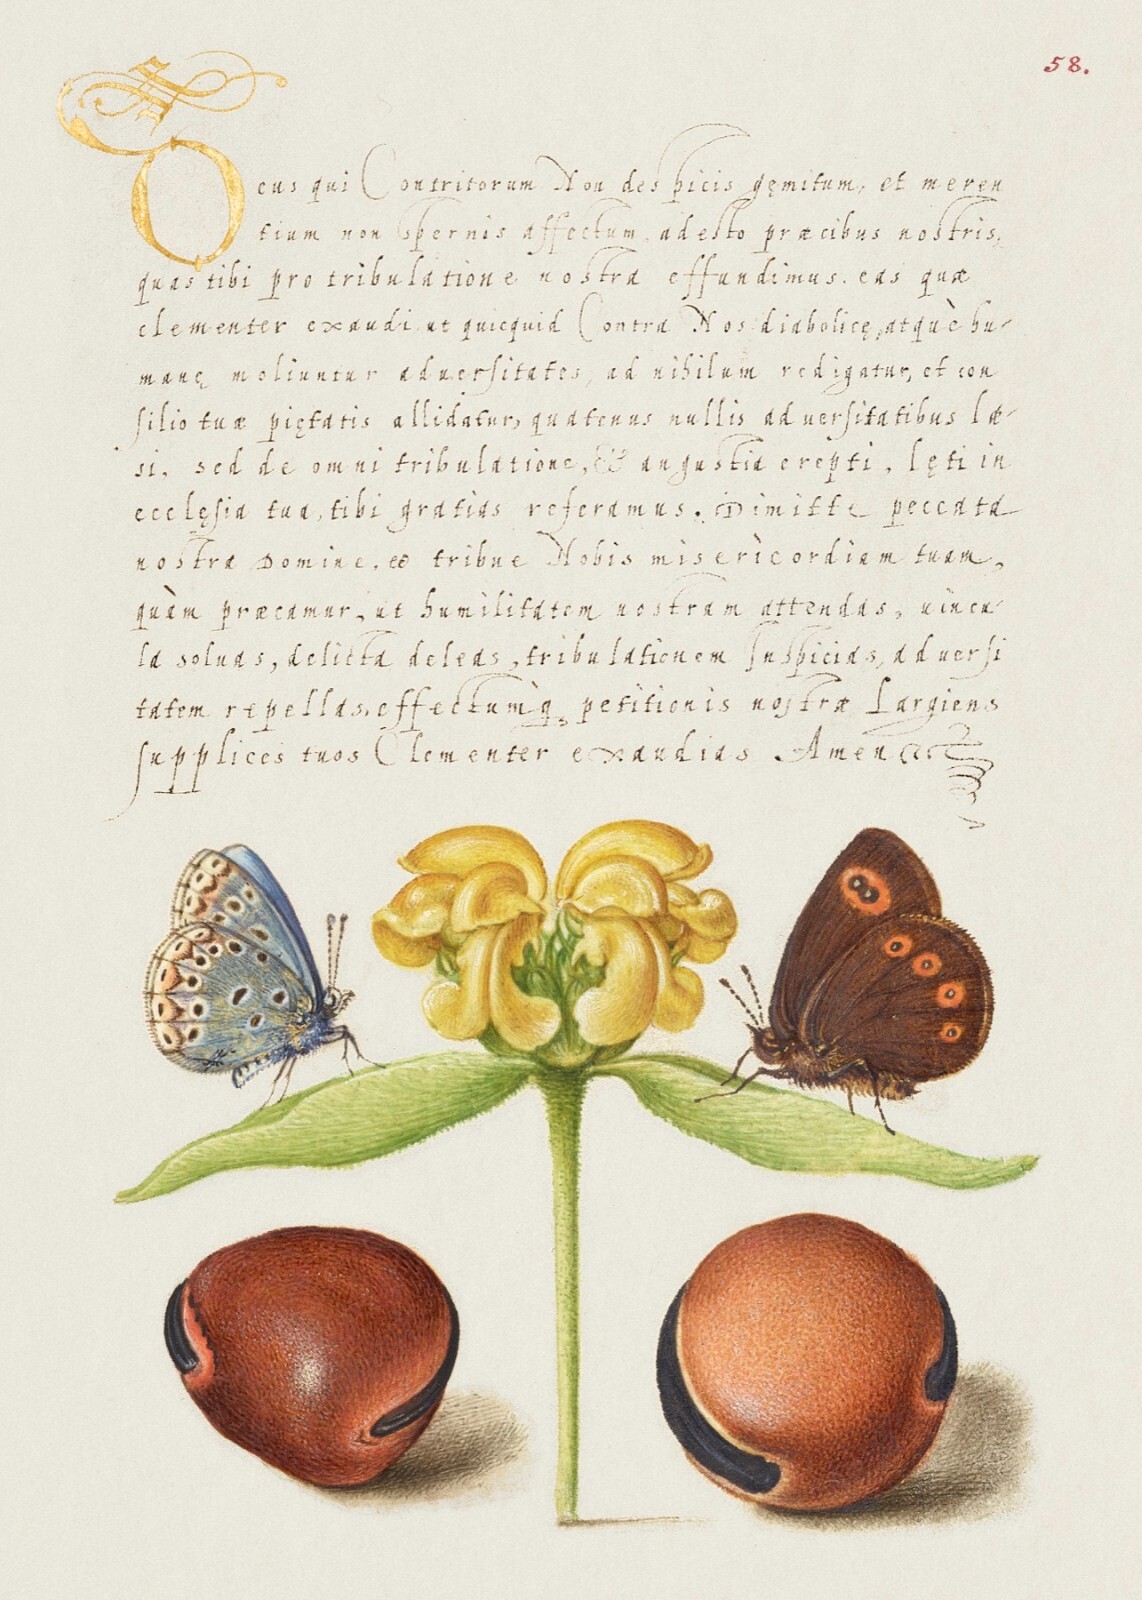 58.
Oeus qui Contritorum Non despicis gęmitum, et meren
tium non spernis affectum, adesto præcibus nostris,
quas tibi pro tribulatione nostra effundimus. eas quæ
clementer exaudi, ut quicquid Contra Nos diabolicę, atquè hu-
manę moliuntur aduersitates, ad nihilum redigatur, et con
silio tuæ piętatis allidatur, quatenus nullis aduersitatibus læ-
si, sed de omni tribulatione, & angustia erepti, lęti in
ecclęsia tua, tibi gratias referamus. Dimitte peccata
nostra Domine, et tribue Nobis misericordiam tuam,
quàm præcamur, ut humilitatem nostram attendas, uincu-
la soluas, delicta deleas, tribulationem Inspicias, aduersi
tatem repellas, effectumq, petitionis nostræ Largiens
supplices tuos Clementer exaudias Amen